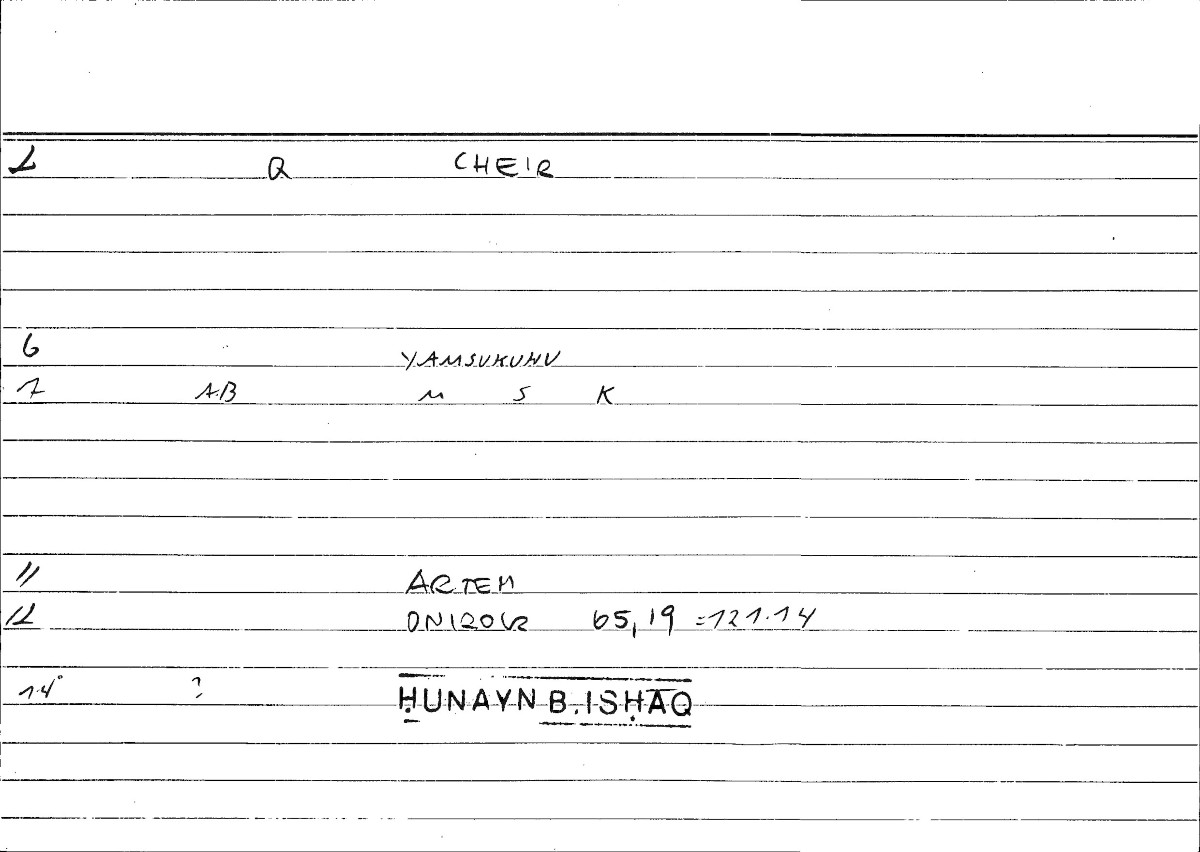 1 Q CHEIR
6 YAMSUKUHU
7 AB M S K
11 ARTEM
12 ONIROCR 65,19 =121.14
14 ? ḤUNAYN B. ISḤĀQ